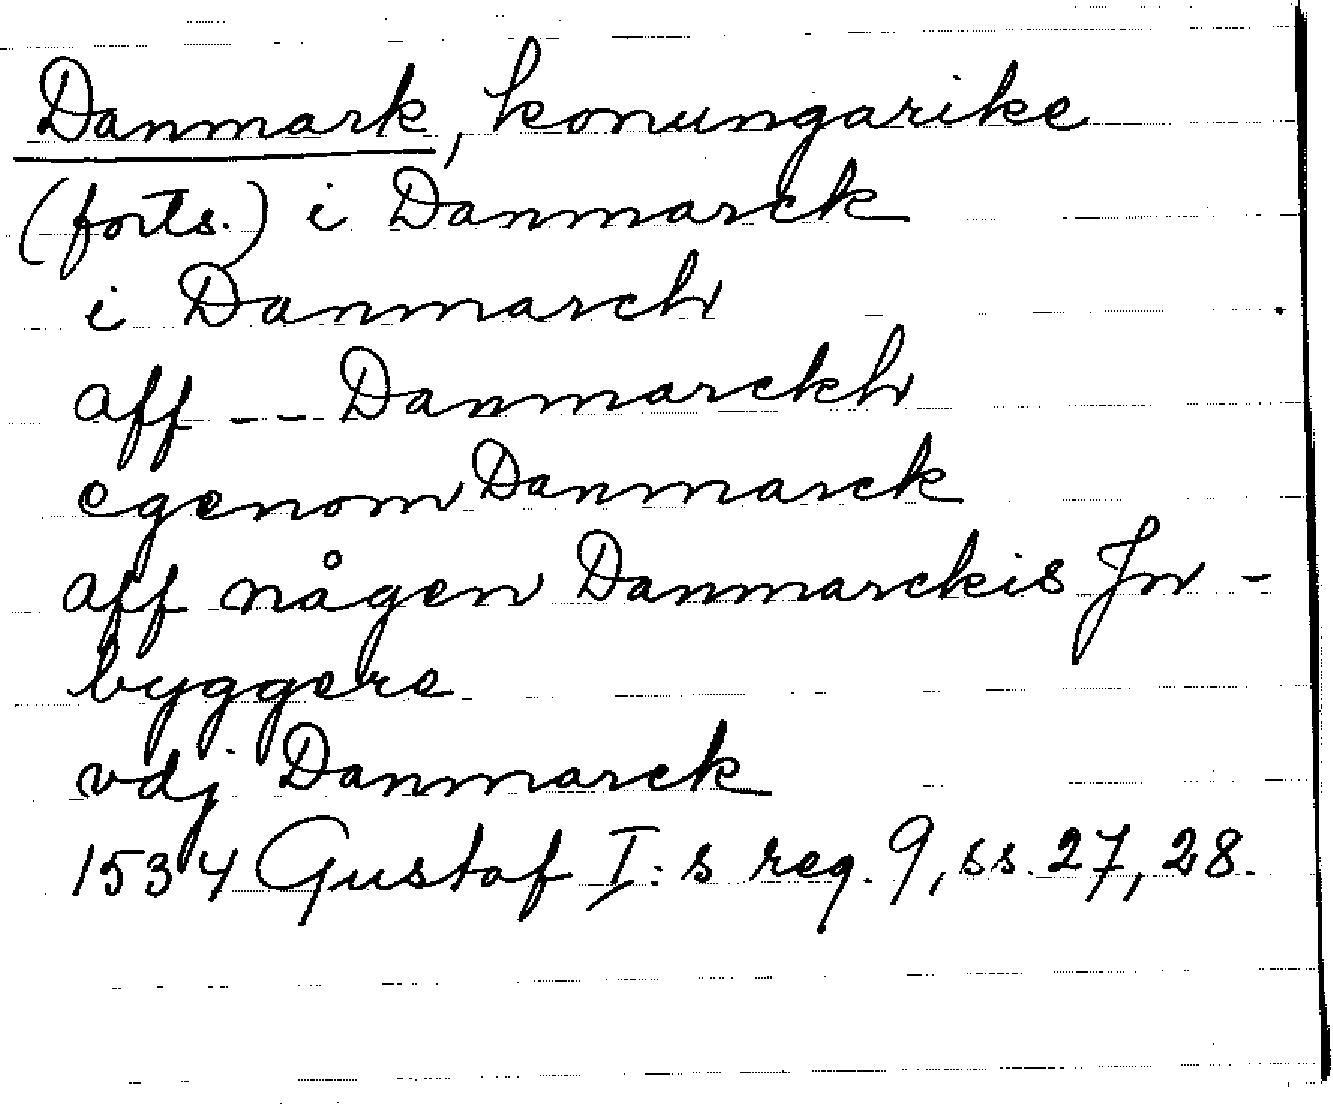 Danmark, konungarike
(forts.) i Danmarck
i Danmarch
aff -- Danmarckh
egenom Danmarck
aff någen Danmarckis Jn-
byggere
vdj Danmarck
1534 Gustaf I:s reg. 9, ss. 27, 28.